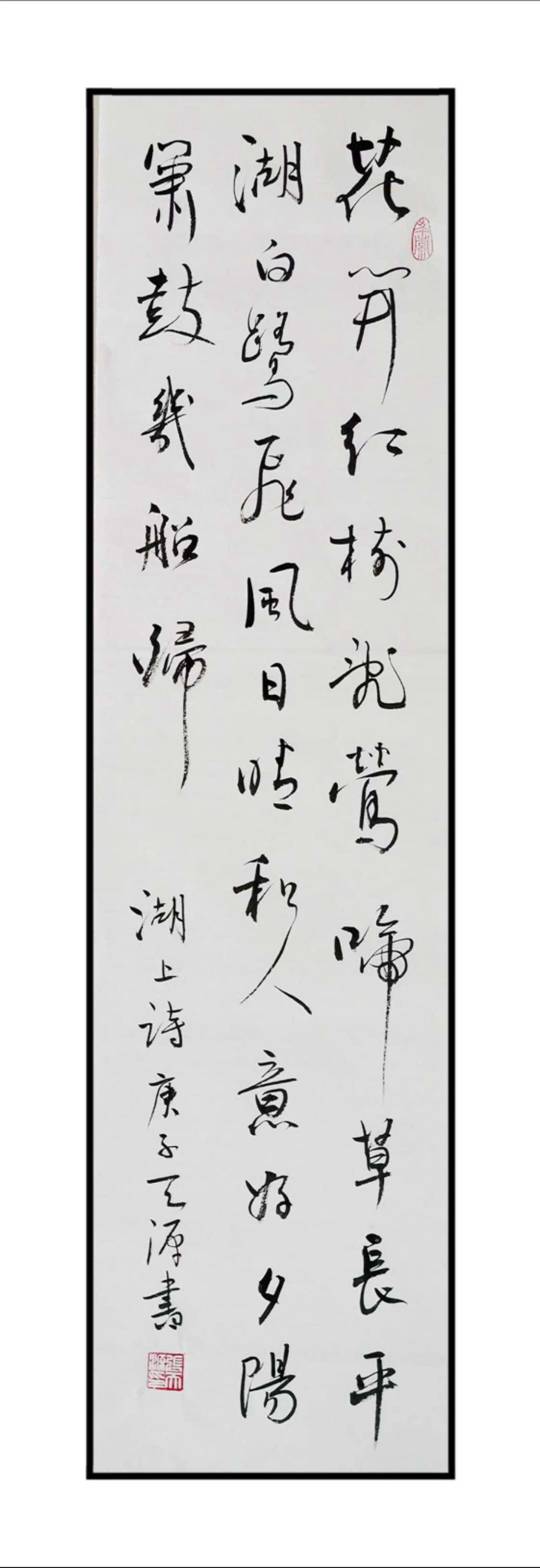 花開紅樹亂鶯啼草長平
湖白鷺飛風日晴和人意好夕陽
簫鼓幾船歸 湖上詩 庚子天源書